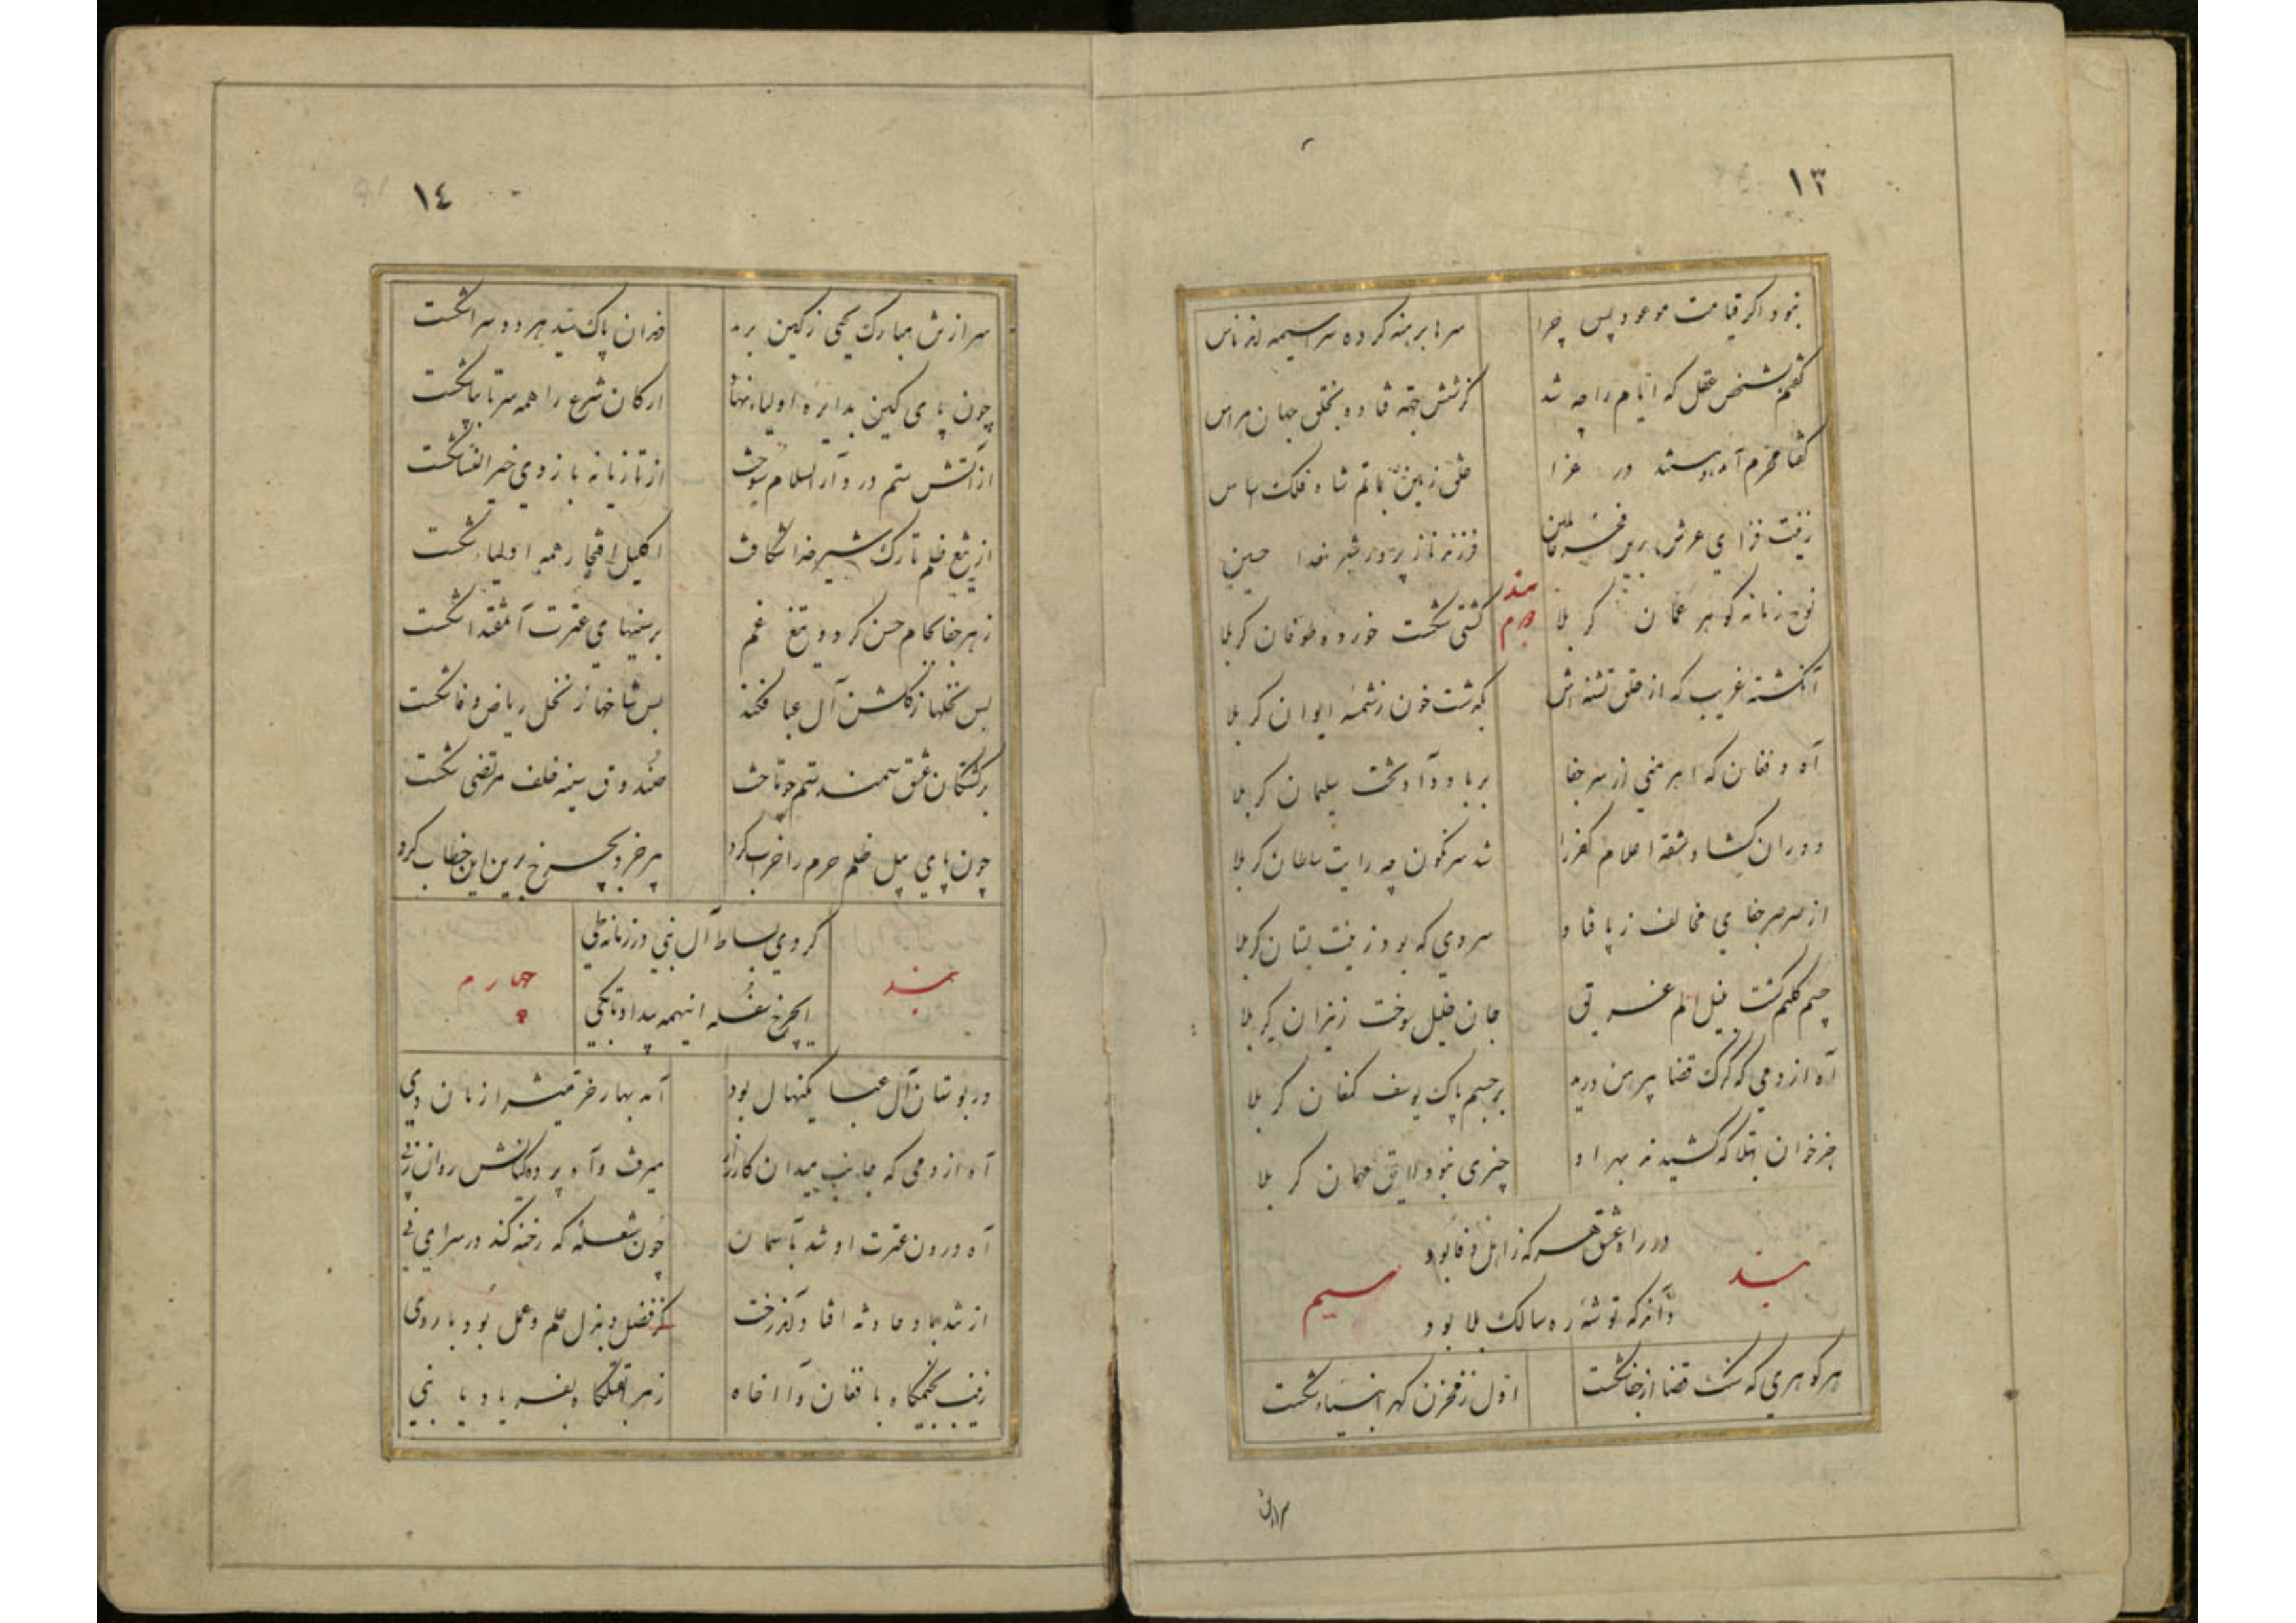 ١٣
نبود اگر قیامت موعود پس چرا سرها برهنه کرده سراسیمه اند ناس
گفتم بشخص عقل که ایام را چه شد کز شش جهة فتاده بخلق جهان هراس
گفتا محرم آمد و شد در عزا خلق زمین بماتم شاه فلک اساس
زینت فزای عرش برین فخر عالمین فرزند ناز پرور شیر خدا حسین
بند دوم
نوح زمانه گوهر عمان کربلا کشتی شکست خورده طوفان کربلا
آنکشته غریب که از حلق تشنه اش بگذشت خون ز شمسه ایوان کربلا
آه و فغان که اهرمنی از سر جفا بر باد داد تخت سلیمان کربلا
دوران گشاد شقه اعلام کفر را شد سرنگون چه رایت سلطان کربلا
از صرصر جفای مخالف ز پا فتاد سروی که بود زینت بستان کربلا
جسم کلیم گشت بنیل الم غریق جان خلیل سوخت ز نیران کربلا
آه از دمی که گرگ قضا پیرهن درید بر جسم پاک یوسف کنعان کربلا
جز خوان ابتلا که کشیدند بهر او چیزی نبود لایق مهمان کربلا
در راه عشق هر که ز اهل وفا بود
بند سیم
وآنرا که توشه ره سالک بلا بود
هر گوهری که سنگ قضا از جفا شکست اول ز مخزن گهر انبیا شکست
سر از تن
١٤
سر از تن مبارک یحیی ز کین برید دندان پاک سید هر دو سرا شکست
چون پای کین بدایره اولیا نهاد ارکان شرع را همه سر تا بپا شکست
از آتش ستم در دار السلام سوخت از تازیانه بازوی خیر النسا شکست
از تیغ ظلم تارک شیر خدا شکافت اکلیل افتخار همه اولیا شکست
زهر جفا بکام حسن کرد و تیغ غم بر سینهای عترت آل مقتدا شکست
بس نخلها ز گلشن آل عبا فکند بس شاخها ز نخل ریاض وفا شکست
بر کشتگان عشق سمند ستم چو تاخت صندوق سینه خلف مرتضی شکست
چون پای پیل ظلم حرم را خراب کرد پیر خرد بچرخ برین این خطاب کرد
کردی بساط آل نبی در زمانه طی
بند چهارم
ایچرخ سفله اینهمه بیداد تا بکی
در بوستان آل عبا یکنهال بود آمد بهار خرمیش از زمان دی
آه از دمی که جانب میدان کارزار میرفت و آه پرده گیانش روان ز پی
آه درون عترت او شد بآسمان چون شعله که رخنه کند در سرای نی
از تند باد حادثه افتاد آندرخت کز فضل و بذل و علم و عمل بود بار وی
زینب بخیمگاه با فغان وا اخاه زهرا بقتلگاه بفریاد یا بنی